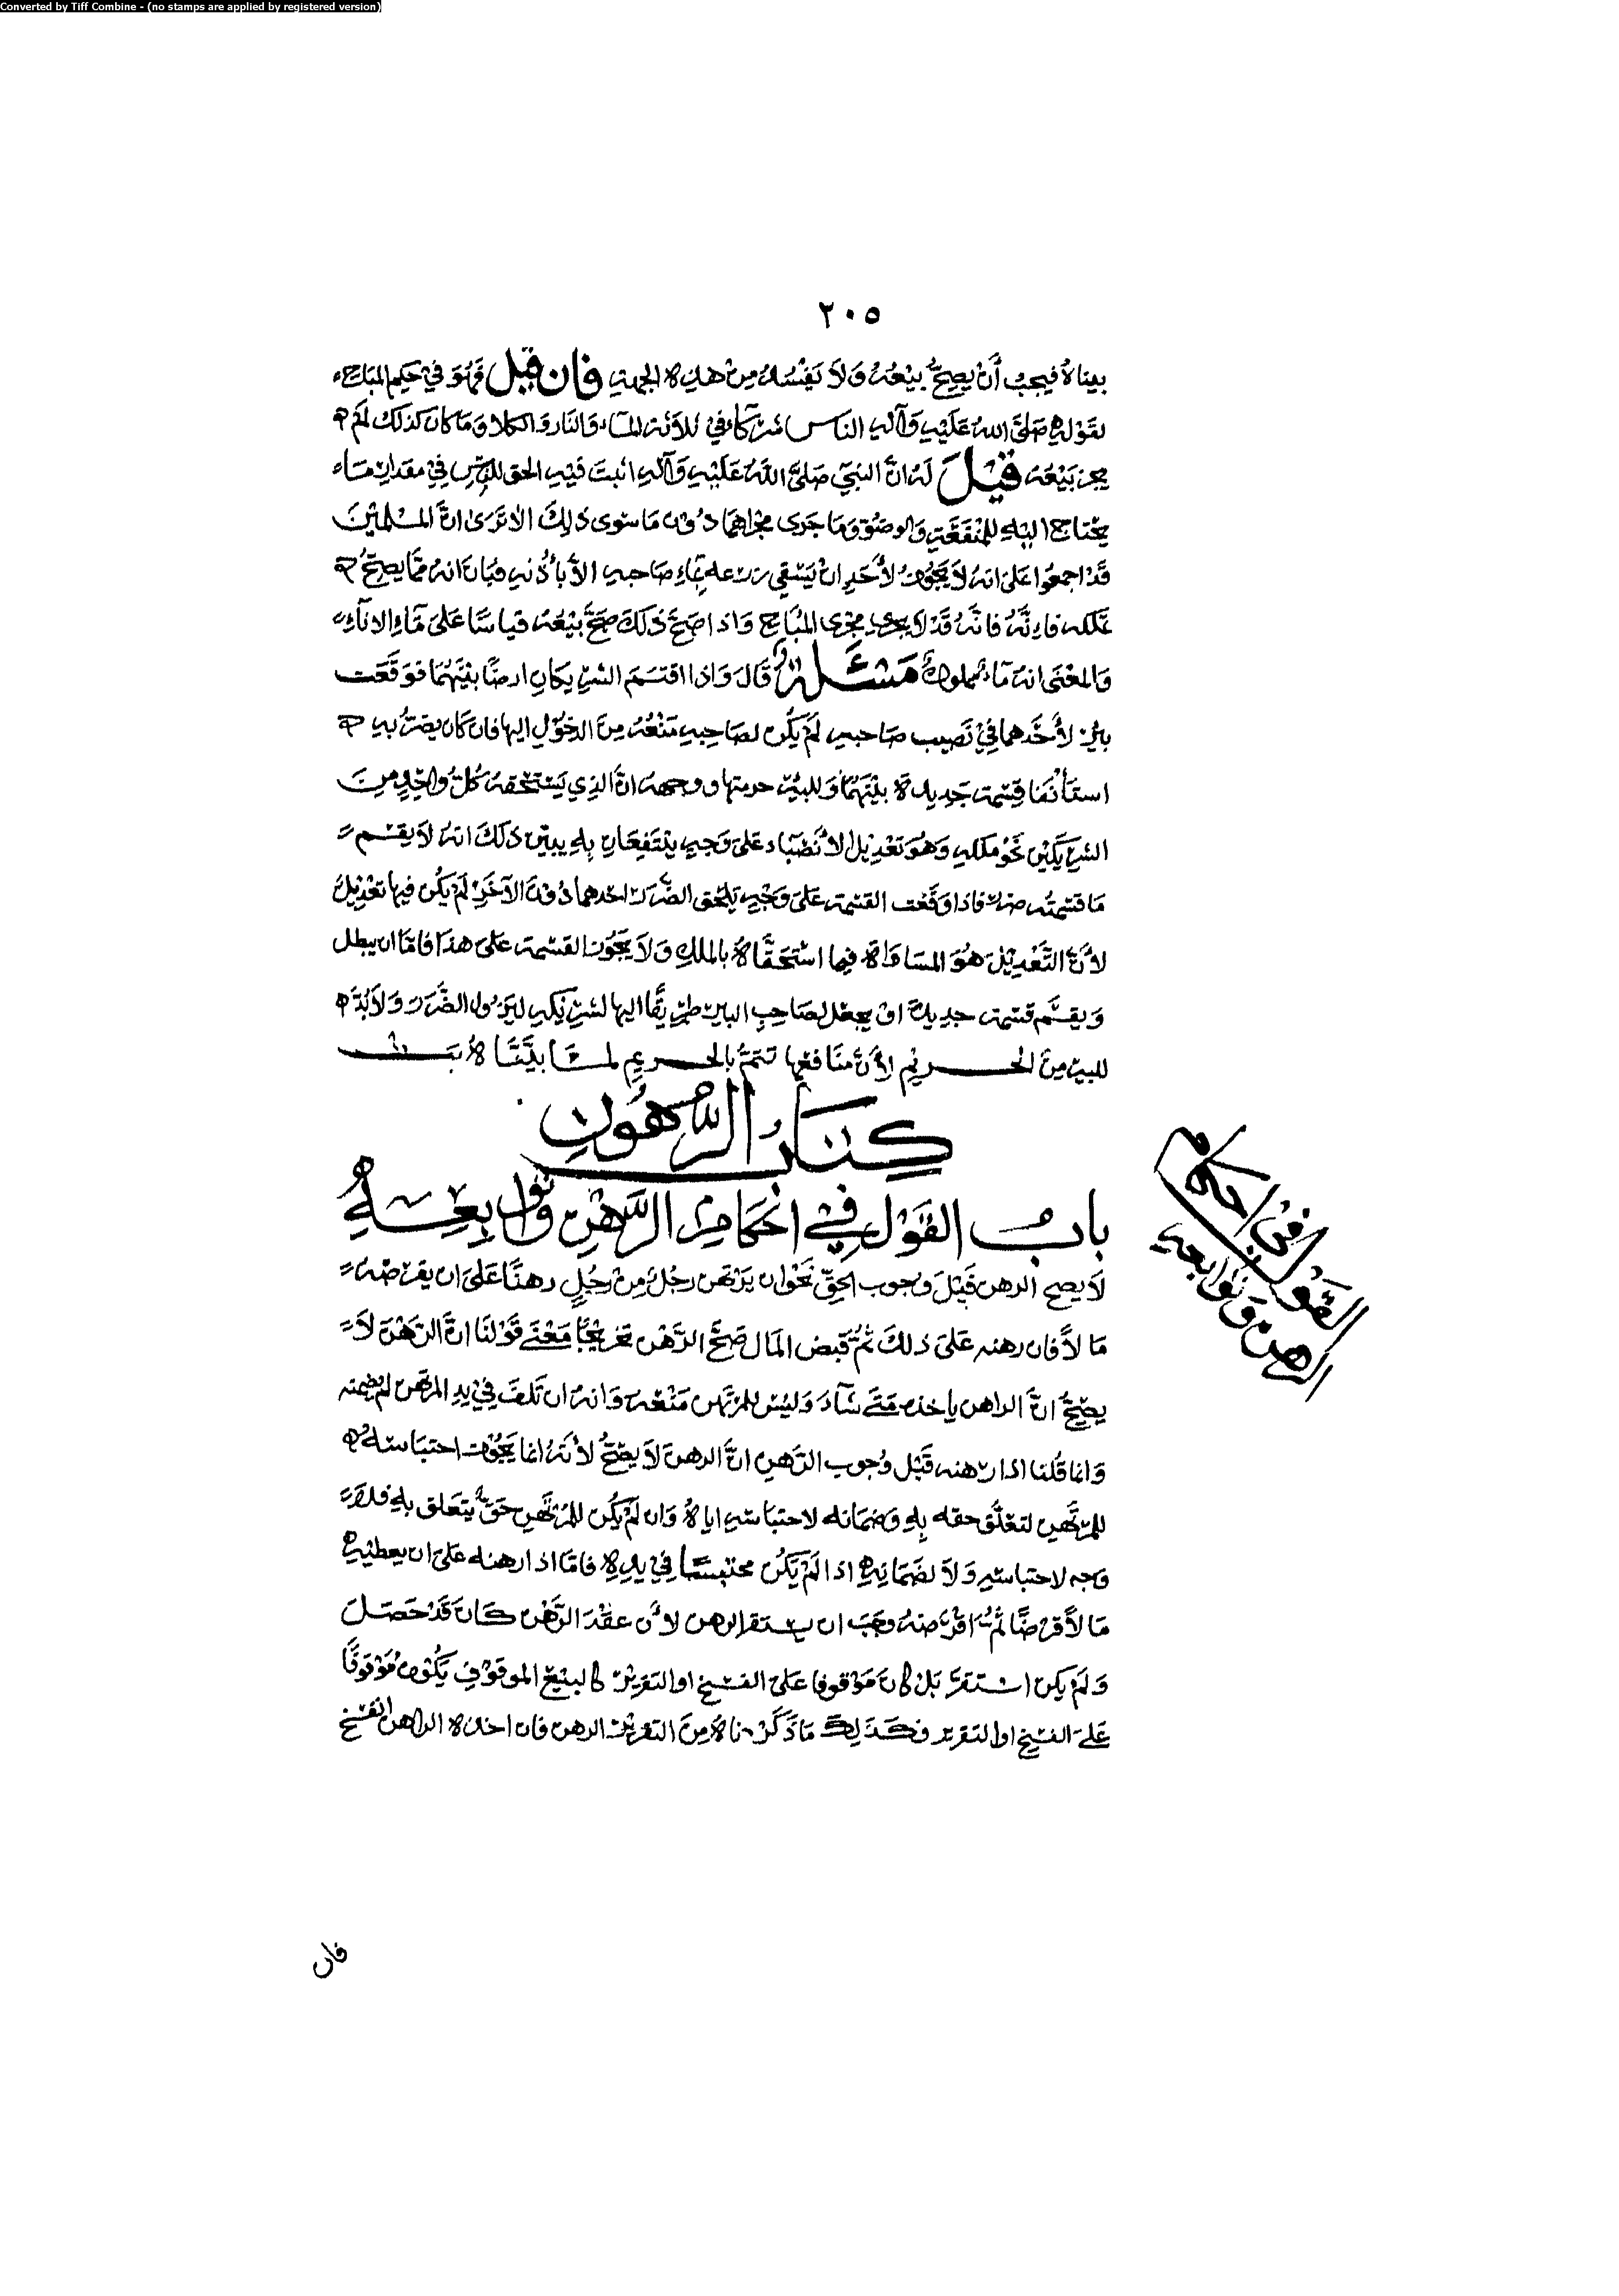 Converted by Tiff Combine - (no stamps are applied by registered version)
٢٠٥
بيناه فيجب أن يصح بيعه ولا يفسده من هذه الجهة فان قيل فهو في حكم المباح
لقوله صلى الله عليه وآله الناس شركاء في ثلاثة الماء والنار والكلا وما كان كذلك لم
يجز بيعه قيل له ان النبي صلى الله عليه وآله اثبت فيه الحق للناس في مقدار ماء
يحتاج اليه للمنفعة والوضوء وما جرى مجراهما دون ما سوى ذلك الا ترى ان المسلمين
قد اجمعوا على انه لا يجوز لأحد ان يسقي زرعه بماء صاحبه الا بأذنه فبان انه مما يصح
تملكه فانه قد لا يجري مجرى المباح واذا صح ذلك صح بيعه قياسا على ماء الاناء
والمعنى انه ماء مملوك مسئلة قال واذا اقتسم الشريكان ارضا بينهما فوقعت
بئر لأحدهما في نصيب صاحبه لم يكن لصاحبه منعه من الدخول اليها فان كان يضر به
استأنفا قسمة جديدة بينهما وللبئر حرمتها ووجهه ان الذي يستحقه كل واحد من
الشريكين نحو ملكه وهو تعديل الأنصباء على وجه ينتفعان به يبين ذلك انه لا يقسم
ما قسمته ضرر فاذا وقعت القسمة على وجه يلحق الضرر احدهما دون الآخر لم يكن فيها تعديل
لأن التعديل هو المساواة فيما استحقاه بالملك ولا يجوز القسمة على هذا فاما ان يبطل
ويقسم قسمة جديدة او يجعل لصاحب البئر طريقا اليها لشريكه ليزول الضرر ولا بد
للبئر من الحريم لأن منافعها تتم بالحريم لما بيناه
كتاب الرهون
باب القول في احكام الرهن وتوابعه
القول في احكام
الرهن وتوابعه
لا يصح الرهن قبل وجوب الحق نحو ان يرتهن رجل من رجل رهنا على ان يقرضه
مالا فان رهنه على ذلك ثم قبض المال صح الرهن تخريجا معنى قولنا ان الرهن لا
يصح ان الراهن ياخذه متى شاء وليس للمرتهن منعه وانه ان تلف في يد المرتهن لم يضمنه
وانما قلنا اذا رهنه قبل وجوب الرهن ان الرهن لا يصح لأنه انما يجوز احتباسه
للمرتهن لتعلق حقه به وضمانه لاحتباسه اياه وان لم يكن للمرتهن حق يتعلق به فلا
وجه لاحتباسه ولا لضمانه اذا لم يكن محتبسا في يده فاما اذا رهنه على ان يعطيه
مالا قرضا ثم اقرضه وجب ان يستقر الرهن لأن عقد الرهن كان قد حصل
ولم يكن استقر بل كان موقوفا على الفسخ او التقرير كالبيع الموقوف يكون موقوفا
على الفسخ او التقرير فكذلك ما ذكرناه من التقرير الرهن فان اخذه الراهن انفسخ
فان